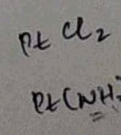 Pt Cl₂
Pt(NH